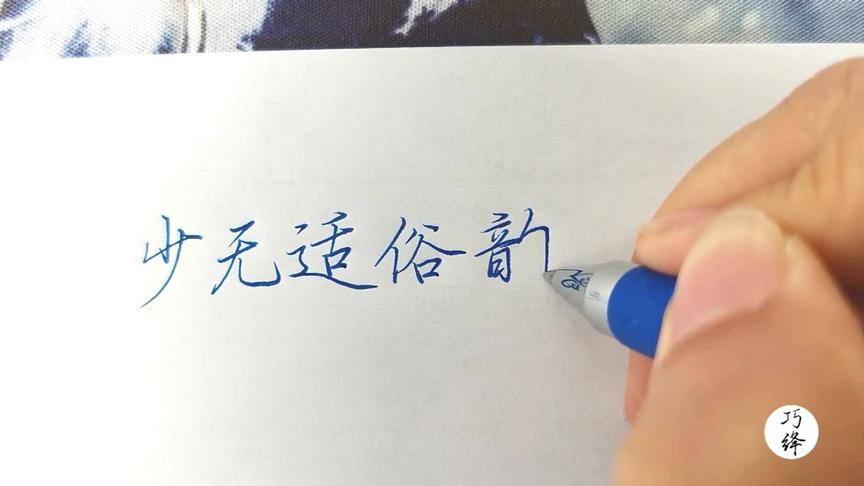 少无适俗韵
巧绛